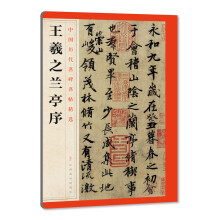 王羲之兰亭序
中国历代
永和九年歲在癸丑暮春之初會
會稽山陰之蘭亭脩稧事
也羣賢畢至少長咸集此地
有崇山峻領茂林脩竹又有清流激